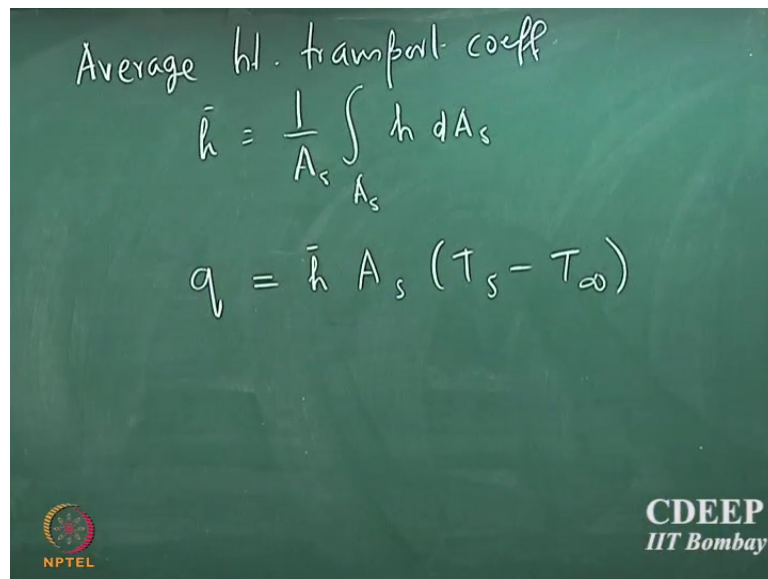 Average ht. transport coeff.
h̄ = 1/A_s ∫_{A_s} h dA_s
q = h̄ A_s (T_s - T_∞)
NPTEL
CDEEP
IIT Bombay